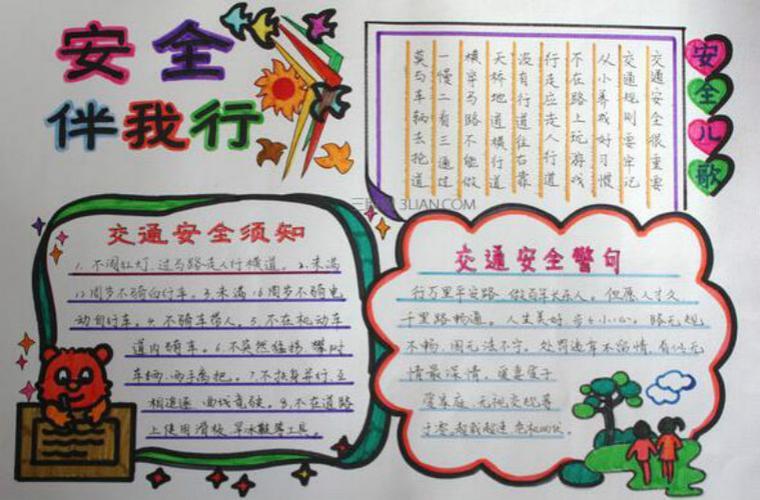 安全
伴我行
安全儿歌
交通安全很重要
交通规则要牢记
从小养成好习惯
不在路上玩游戏
行走应走人行道
没有行道往右靠
天桥地道横行道
横穿马路不能做
一慢二看三通过
莫与车辆去抢道
3LIAN.COM
交通安全须知
1.不闯红灯,过马路走人行横道。2.未满
12周岁不骑自行车。3.未满16周岁不骑电
动自行车。4.不骑车带人。5.不在机动车
道内骑车。6.不突然猛拐、攀附
车辆,两手离把。7.不扶身并行、互
相追逐、曲线竞驶。8.不在道路
上使用滑板、旱冰鞋等工具。
交通安全警句
行万里平安路 做百年长乐人。但愿人
千里路畅通。人生美好 步々小心。路无规
不畅,国无法不宁。处罚违章不留情,看似无
情最深情。爱妻爱子
爱家庭,无视交规等
于零。超载超速 危机四伏。